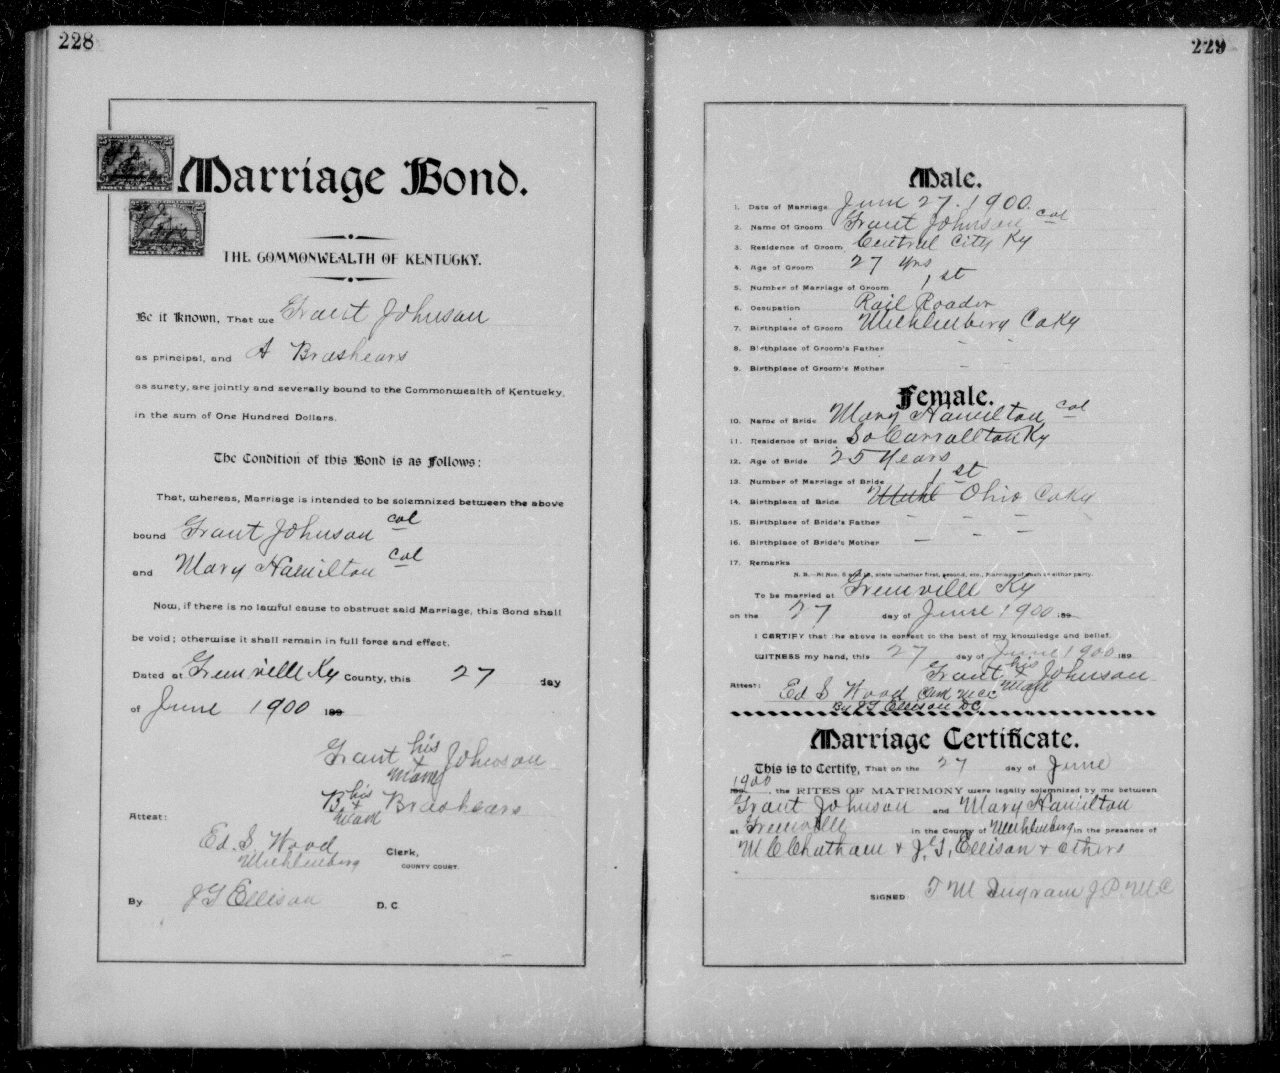 228
Marriage Bond.
THE COMMONWEALTH OF KENTUCKY.
Be it Known, That we Grant Johnson
as principal, and A Brashears
as surety, are jointly and severally bound to the Commonwealth of Kentucky,
in the sum of One Hundred Dollars.
The Condition of this Bond is as Follows:
That, whereas, Marriage is intended to be solemnized between the above
bound Grant Johnson col
and Mary Hamilton col
Now, if there is no lawful cause to obstruct said Marriage, this Bond shall
be void; otherwise it shall remain in full force and effect.
Dated at Greenville Ky County, this 27 day
of June 1900 189
Grant his x mark Johnson
B his x mark Brashears
Attest:
Ed. S. Wood
Muhlenberg Clerk,
COUNTY COURT.
By J G Ellison D. C.
229
Male.
1. Date of Marriage June 27. 1900.
2. Name Of Groom Grant Johnson col
3. Residence of Groom Central City Ky
4. Age of Groom 27 yrs
5. Number of Marriage of Groom 1st
6. Occupation Rail Roader
7. Birthplace of Groom Muhlenberg Co Ky
8. Birthplace of Groom's Father - -
9. Birthplace of Groom's Mother -
Female.
10. Name of Bride Mary Hamilton col
11. Residence of Bride So Carrollton Ky
12. Age of Bride 25 Years
13. Number of Marriage of Bride 1st
14. Birthplace of Bride Muhl Ohio Co Ky
15. Birthplace of Bride's Father - - -
16. Birthplace of Bride's Mother - - -
17. Remarks
N. B.—At Nos. 5 and 13, state whether first, second, etc., marriage of each or either party.
To be married at Greenville Ky
on the 27 day of June 1900 189
I CERTIFY that the above is correct to the best of my knowledge and belief.
WITNESS my hand, this 27 day of June 1900 189
Grant his x mark Johnson
Attest: Ed S Wood Clerk MCC
By J G Ellison DC
Marriage Certificate.
This is to Certify, That on the 27 day of June
1900, the RITES OF MATRIMONY were legally solemnized by me between
Grant Johnson and Mary Hamilton
at Greenville in the County of Muhlenberg in the presence of
M C Chatham + J. G. Ellison + Others
SIGNED T M Ingram J. P. M C